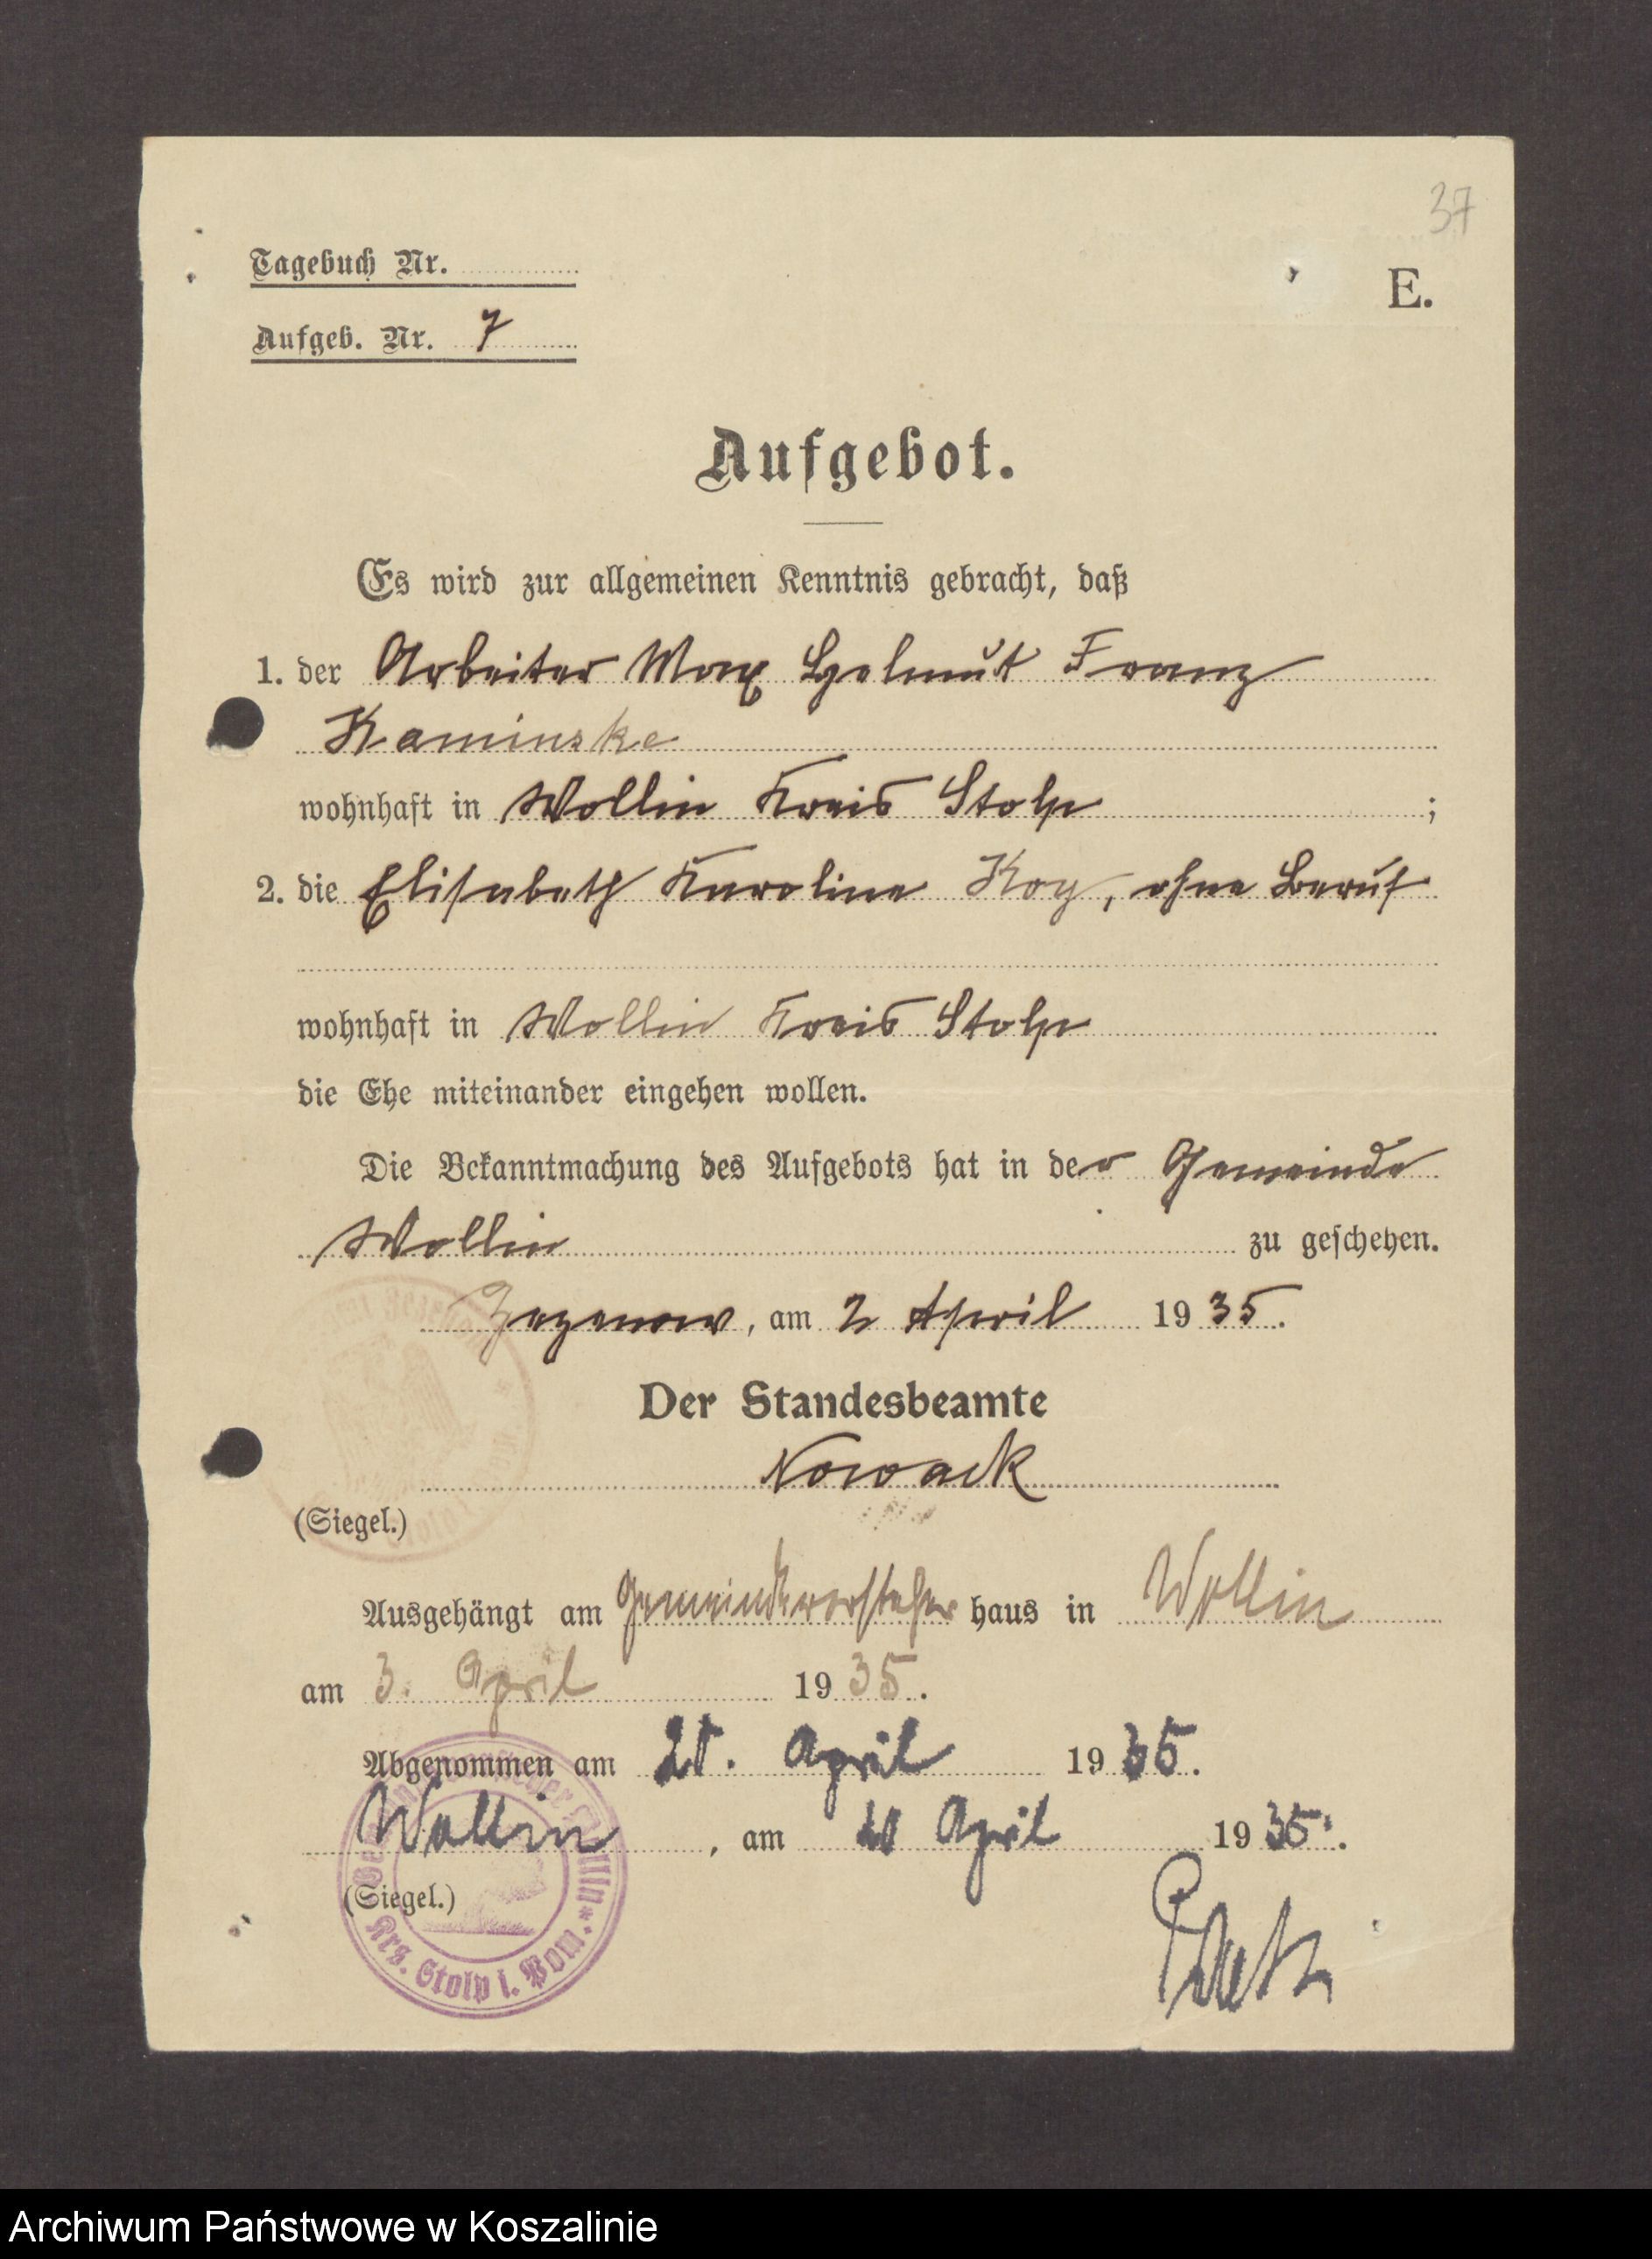 37
Tagebuch Nr.
E.
Aufgeb. Nr. 7
Aufgebot.
Es wird zur allgemeinen Kenntnis gebracht, daß
1. der Arbeiter Max Helmut Franz
Kaminske
wohnhaft in Wollin Kreis Stolp ;
2. die Elisabeth Karoline Koy, ohne Beruf
wohnhaft in Wollin Kreis Stolp
die Ehe miteinander eingehen wollen.
Die Bekanntmachung des Aufgebots hat in der Gemeinde
Wollin zu geschehen.
Zezenow, am 2 April 1935.
Der Standesbeamte
Nowack
(Siegel.)
Ausgehängt am Gemeindevorsteher haus in Wollin
am 3. April 1935.
Abgenommen am April 1935.
Wollin, am April 1935.
(Siegel.)
Krs. Stolp i. Pom.
Archiwum Państwowe w Koszalinie